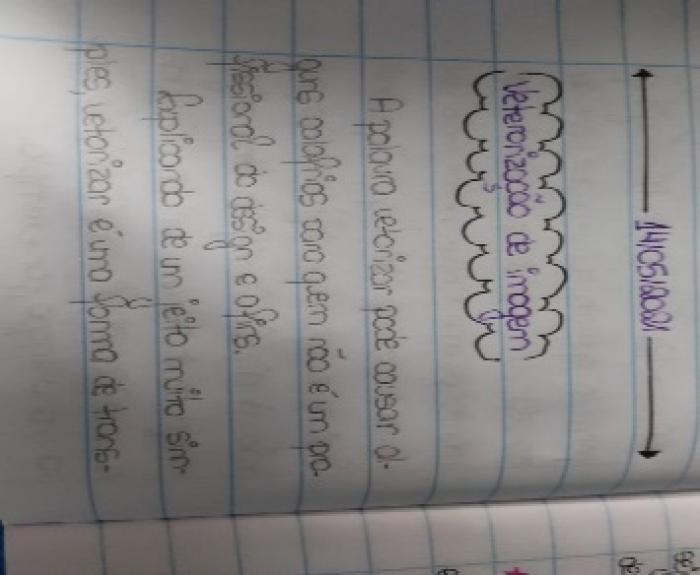 14/05/2021
Vetorização de imagem
A palavra vetorizar pode causar al-
guns calafrios para quem não é um pro-
fissional do design e afins.
Explicando de um jeito muito sim-
ples, vetorizar é uma forma de trans-